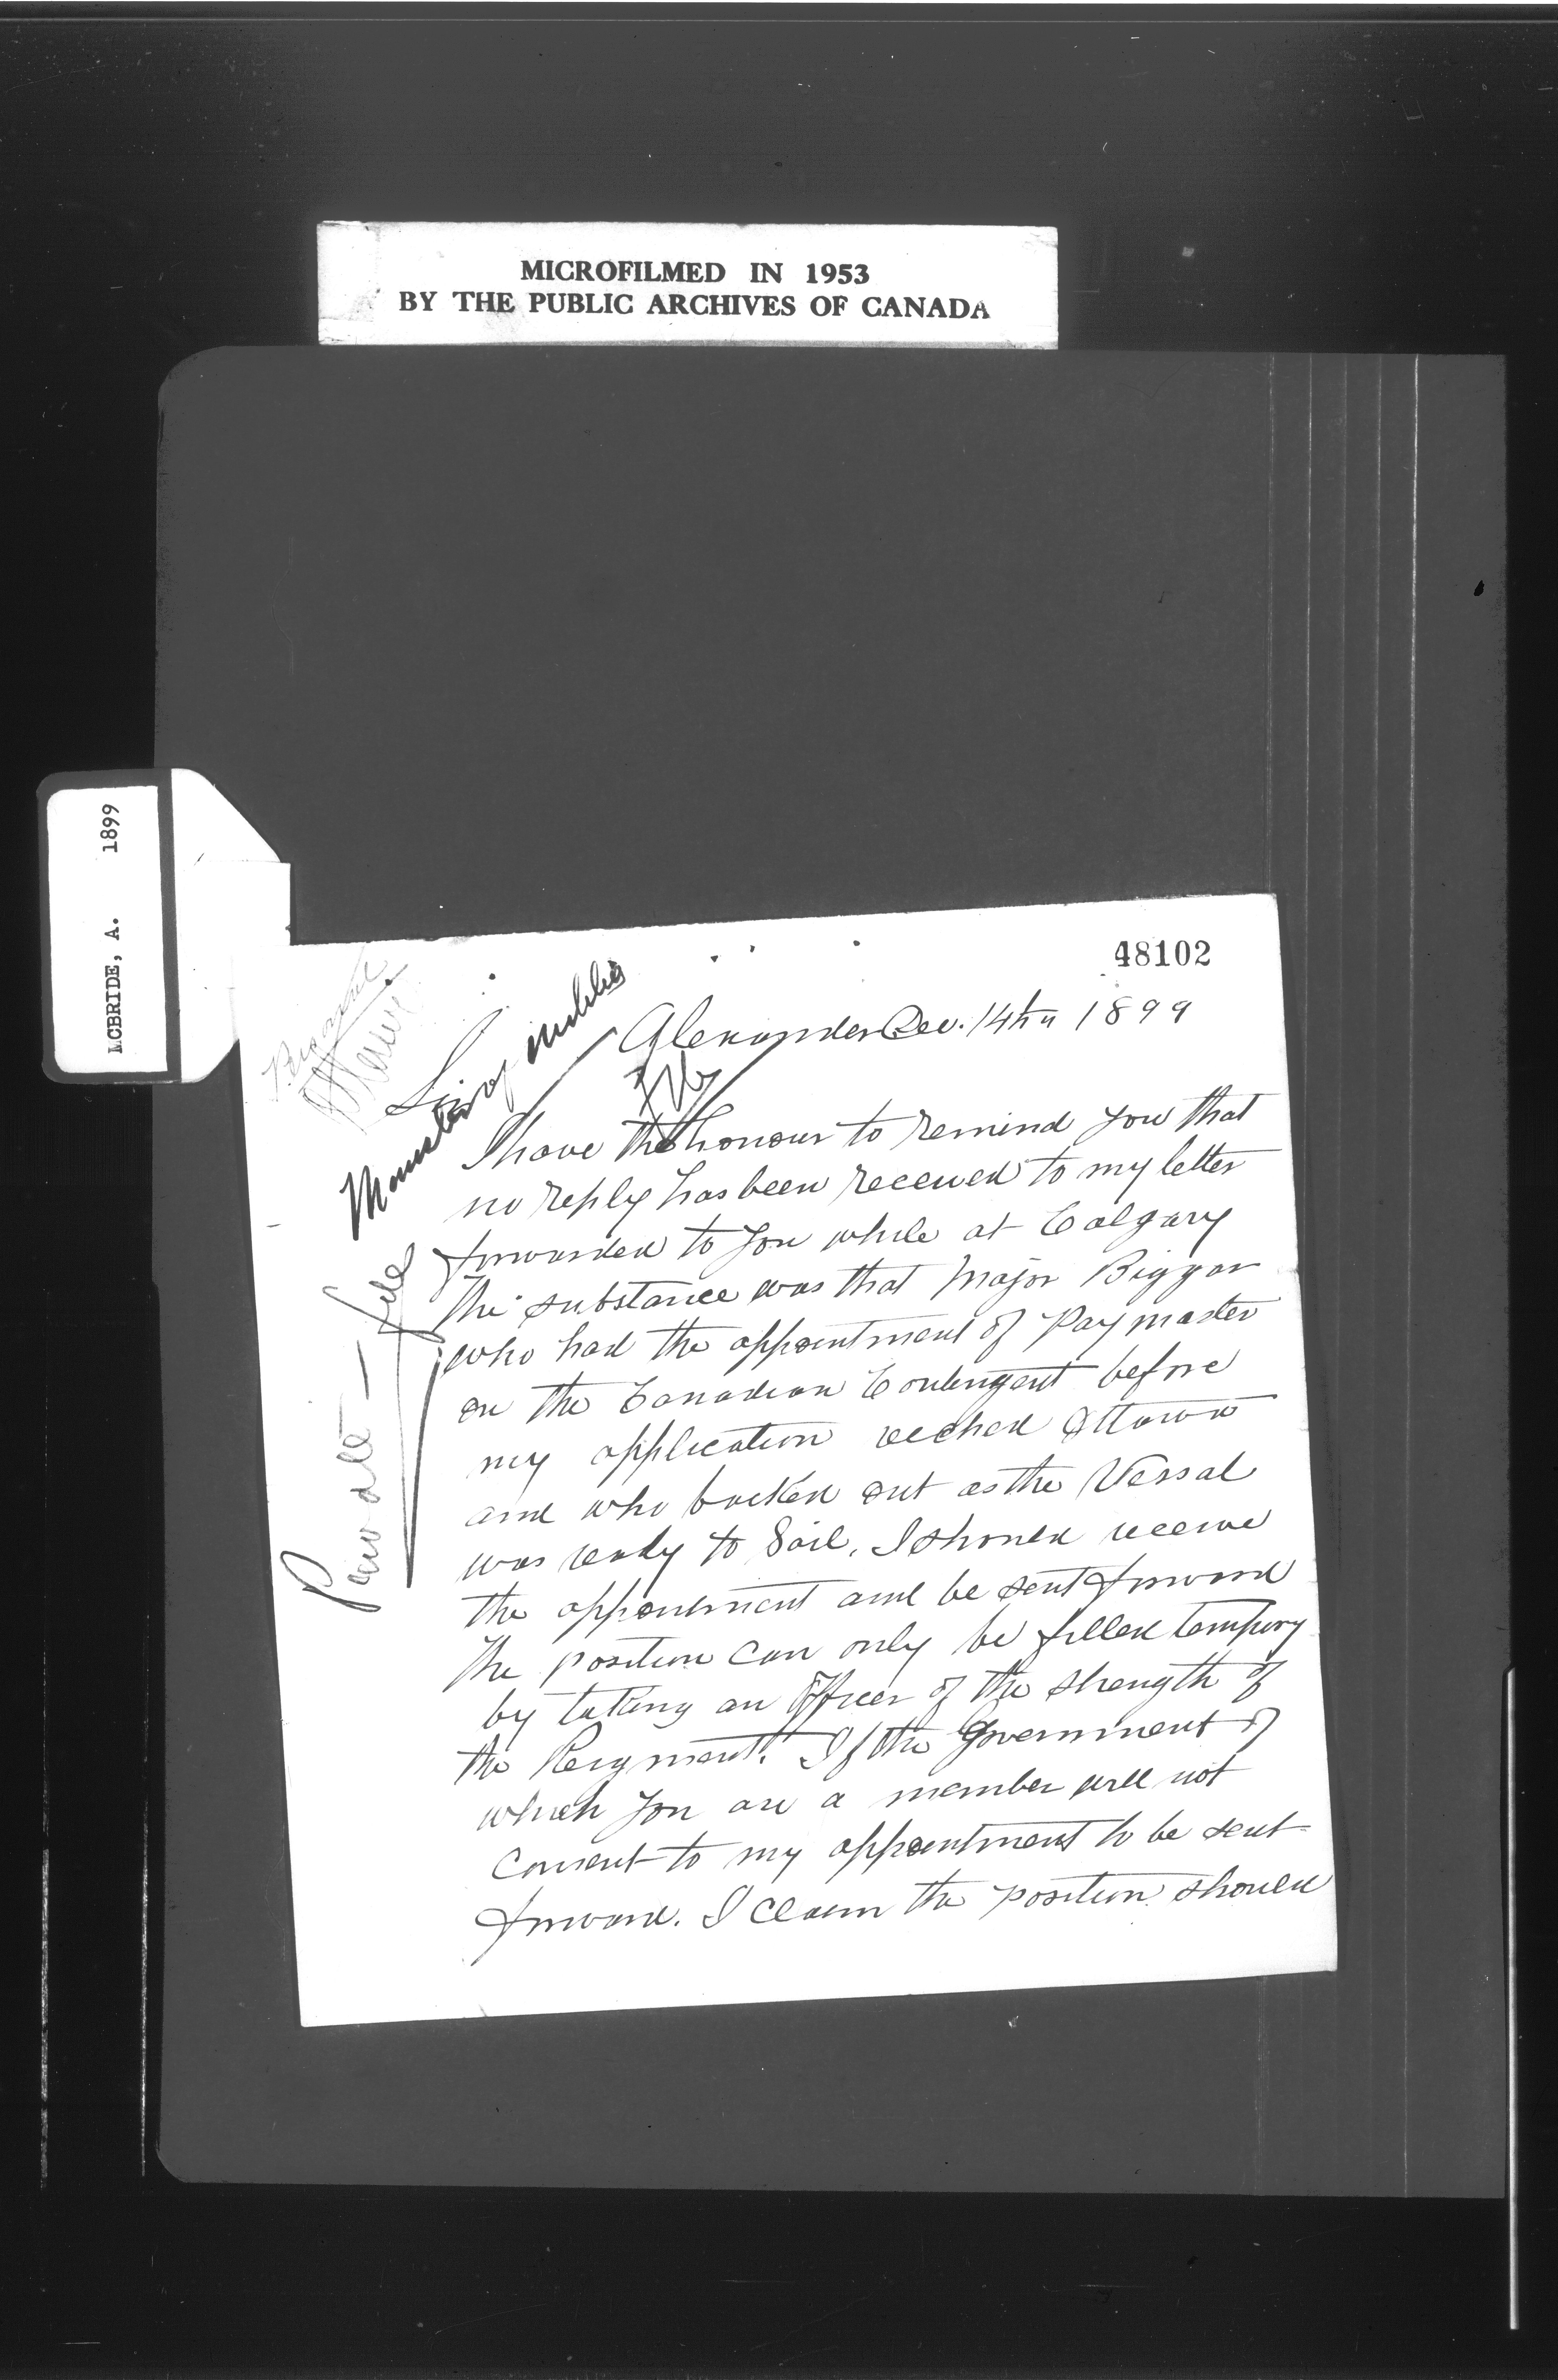 MICROFILMED IN 1953
BY THE PUBLIC ARCHIVES OF CANADA
MCBRIDE, A. 1899
48102
Alexander Dec. 14th 1899
Sir
Minister of militia
file
I have the honour to remind you that
no reply has been received to my letter
forwarded to you while at Calgary
The substance was that Major Biggar
who had the appointment of Paymaster
on the Canadian Contingent before
my application reched Ottawa
and who backed out as the Vessal
was ready to Sail, I should receive
the appointment and be sent forward
The position can only be filled tempory
by taking an Officer of the strength of
the Reigment. If the Government of
which you are a member will not
consent to my appointment to be sent
forward. I claim the position should